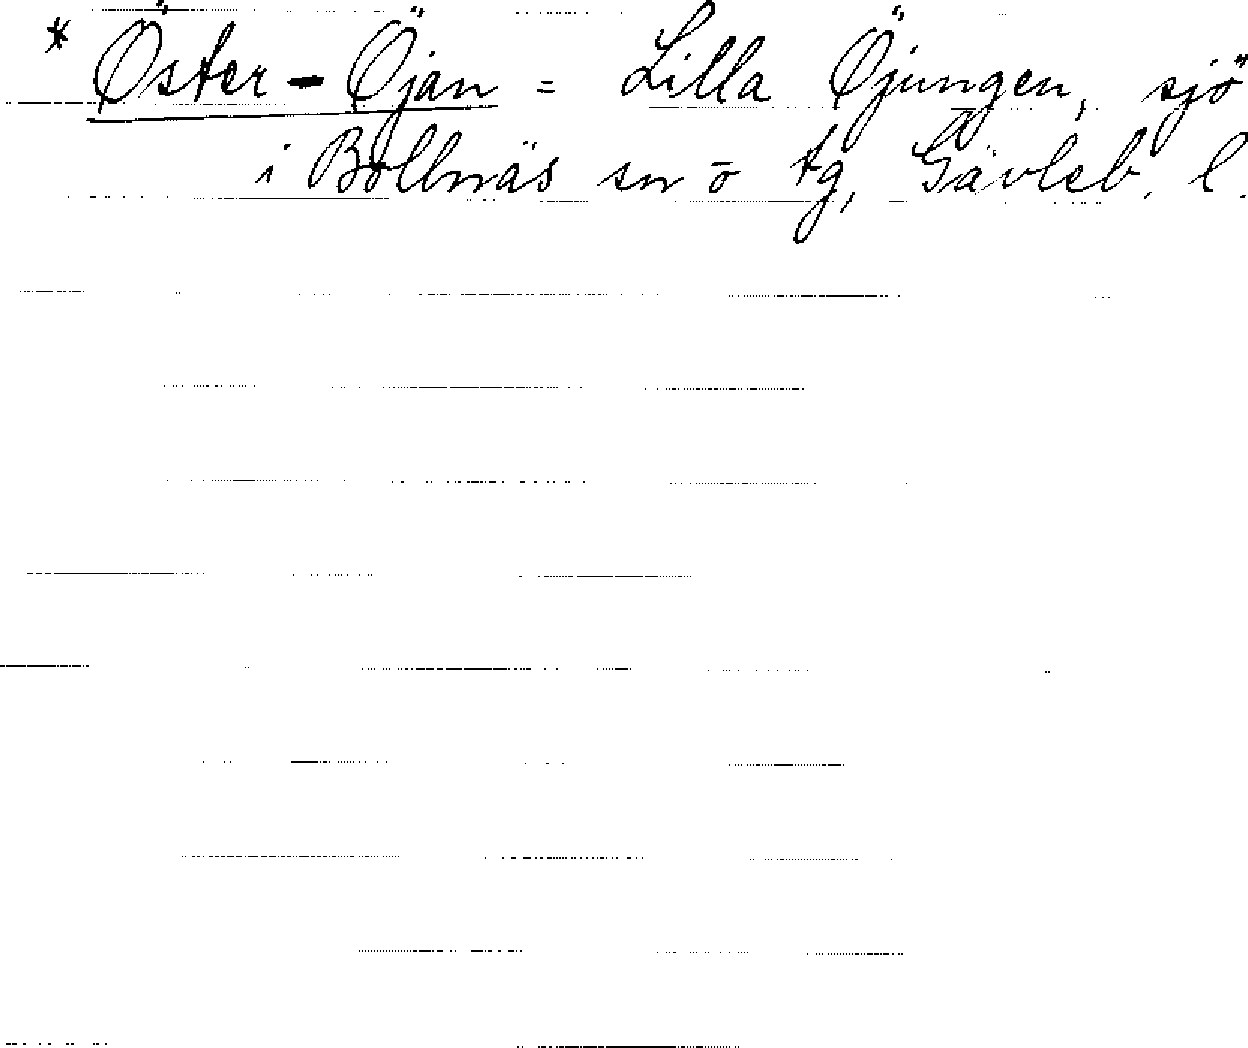 * Öster-Öjan = Lilla Öjungen, sjö
i Bollnäs sn o tg, Gävleb. l.